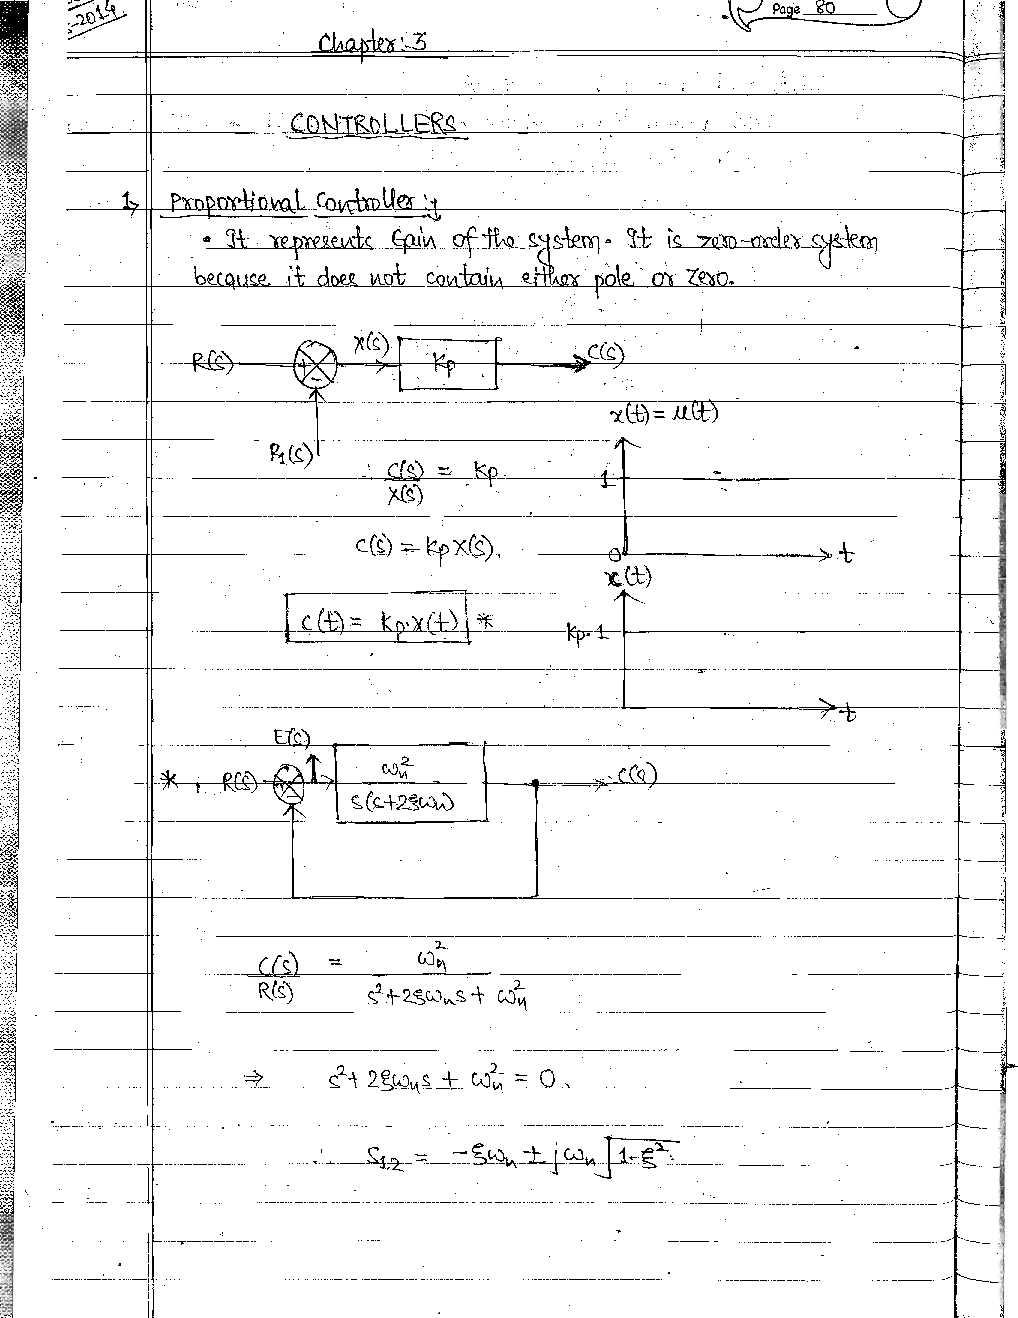 -2014
Page 80
Chapter:-3
CONTROLLERS
1→ Proportional Controller :→
• It represents Gain of the system. It is zero-order system
because it does not contain either pole or zero.
R(s) + - X(s) Kp C(s)
R1(s)
x(t) = u(t)
1
0 t
∴ C(s)/X(s) = Kp.
C(s) = Kp X(s).
c(t) = Kp.x(t) *
c(t)
Kp.1
t
E(s)
* R(s) ωn²/s(s+2ξωn) C(s)
C(s)/R(s) = ωn²/s²+2ξωns+ωn²
⇒ s²+2ξωns + ωn² = 0.
∴ S1,2 = -ξωn ± jωn √1-ξ².